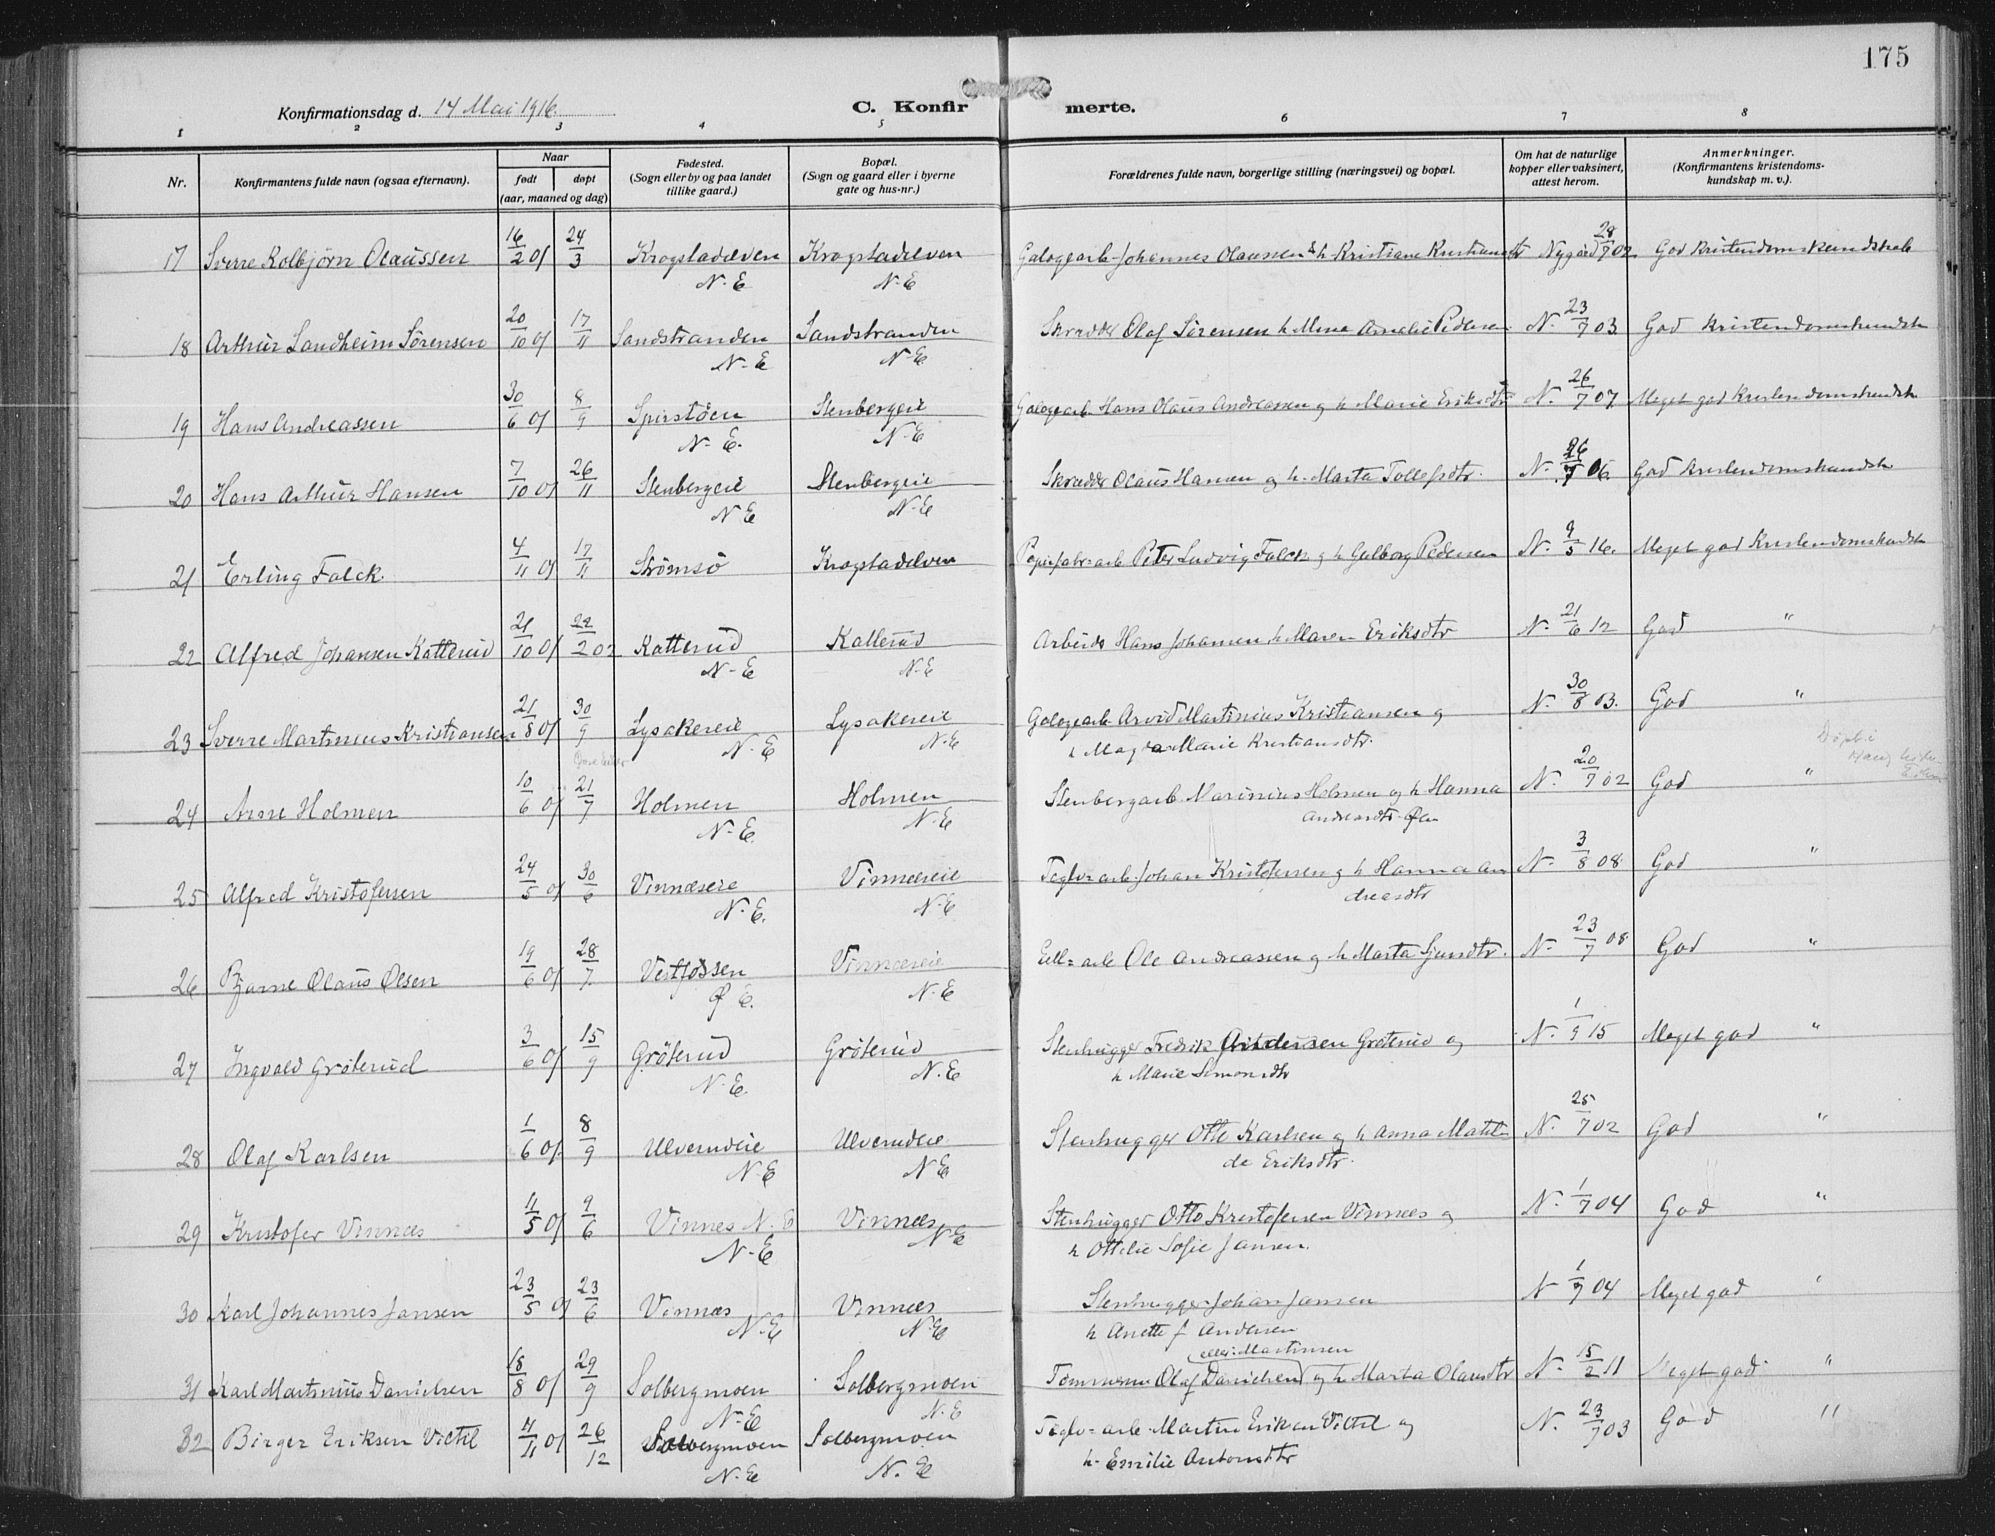 175
Konfirmationsdag d. 14 Mai 1916.
C. Konfirmerte.
1 2 3 4 5 6 7 8
Nr.
Konfirmantens fulde navn (ogsaa efternavn).
Naar
født døpt
(aar, maaned og dag)
Fødested.
(Sogn eller by og paa landet
tillike gaard.)
Bopæl.
(Sogn og gaard eller i byerne
gate og hus-nr.)
Forældrenes fulde navn, borgerlige stilling (næringsvei) og bopæl.
Om hat de naturlige
kopper eller vaksinert,
attest herom.
Anmerkninger.
(Konfirmantens kristendoms-
kundskap m. v.).
17 Sverre Kolbjørn Olaussen 16/2 01 24/3 Krogstadelven Krogstadelven Galogearb. Johannes Olaussen & h. Kristiane Nygård 28/7 02 God Kristendomskundskab
N-E N-E
18 Arthur Sandheim Sørensen 20/10 01 17/11 Sandstranden Sandstranden Skrædder Olaf Sørensen h. Mina Amalie Pedersen N. 23/7 03 God Kristendomskundsk
N-E N-E
19 Hans Andreassen 30/6 01 8/9 Spirstøen Stenbergeie Galogearb. Hans Olaus Andreassen og h. Marie Eriksdtr N. 26/7 07 Meget god Kristendomskundsk
N-E. N-E
20 Hans Arthur Hansen 7/10 01 26/11 Stenbergeie Stenbergeie Skrædder Olaus Hansen og h. Marta Tollefsdtr. N. 26/7 06. God Kristendomskundsk
N-E N-E
21 Erling Falck. 4/11 01 17/11 Strømsø Krogstadelven Papirfabr=arb Peter Ludvig Falck og h. Gulborg Pedersen N. 9/5 16. Meget god Kristendomskundsk
22 Alfred Johansen Katterud 21/10 01 22/2 02 Katterud Katterud Arbeider Hans Johansen h. Maren Eriksdtr N. 21/6 12 God "
N-E N-E
23 Sverre Martinius Kristiansen 21/8 01 30/9 Lysakereie Lysakereie Galogearb Arvid Martinius Kristiansen og N. 30/8 03. God "
N-E N-E h Magda Marie Kristiansdtr.
Døpt i
24 Arne Holmen 10/6 01 21/7 Holmen Holmen Stenbergarb Marinius Holmen og h Hanna N. 20/7 02 God "
N-E. N-E
25 Alfred Kristofersen 24/5 01 30/6 Vinnæseie Vinnæseie Teglv=arb. Johan Kristofersen og h Hanna An N. 3/8 08. God "
N-E. N-E dreasdtr
26 Bjarne Olaus Olsen 19/6 01 28/7 Vestfossen Vinnæseie Cell=arb Ole Andreassen og h Marta Sjursdtr. N. 23/7 08 God "
Ø E. N.E
27 Ingvald Grøterud 3/6 01 15/9 Grøterud Grøterud Stenhugger Fredrik Andersen Grøterud og N. 1/9 15 Meget god "
N.E. N.E h Marie Simonsdtr
28 Olaf Karlsen 1/6 01. 8/9 Ulverudeie Ulverudeie Stenhugger Otto Karlsen og h Anna Matil N. 25/7 02 God "
N.E N.E de Eriksdtr.
29 Kristofer Vinnæs 11/5 01 9/6 Vinnes N. E Vinnæs Stenhugger Otto Kristofersen Vinnæs og N. 1/7 04 God "
N-E N-E h Ottilie Sofie Jansen.
30 Karl Johannes Jansen 23/5 01 23/6 Vinnæs Vinnæs Stenhugger Johan Jansen N 1/7 04 Meget god "
N-E N-E h Anette J Andersen
eller: Martinsen
31 Karl Martinius Danielsen 18/8 01 29/9 Solbergmoen Solbergmoen Tømmerm Olaf Danielsen og h Marta Olausdtr N. 15/2 11 Meget god. "
N-E N.E
32 Birger Eriksen Victil 4/11 01 26/12 Solbergmoen Solbergmoen Teglv=arb. Martin Eriksen Victil og N. 23/7 03 God "
N-E N. E h. Emilie Antonsdtr